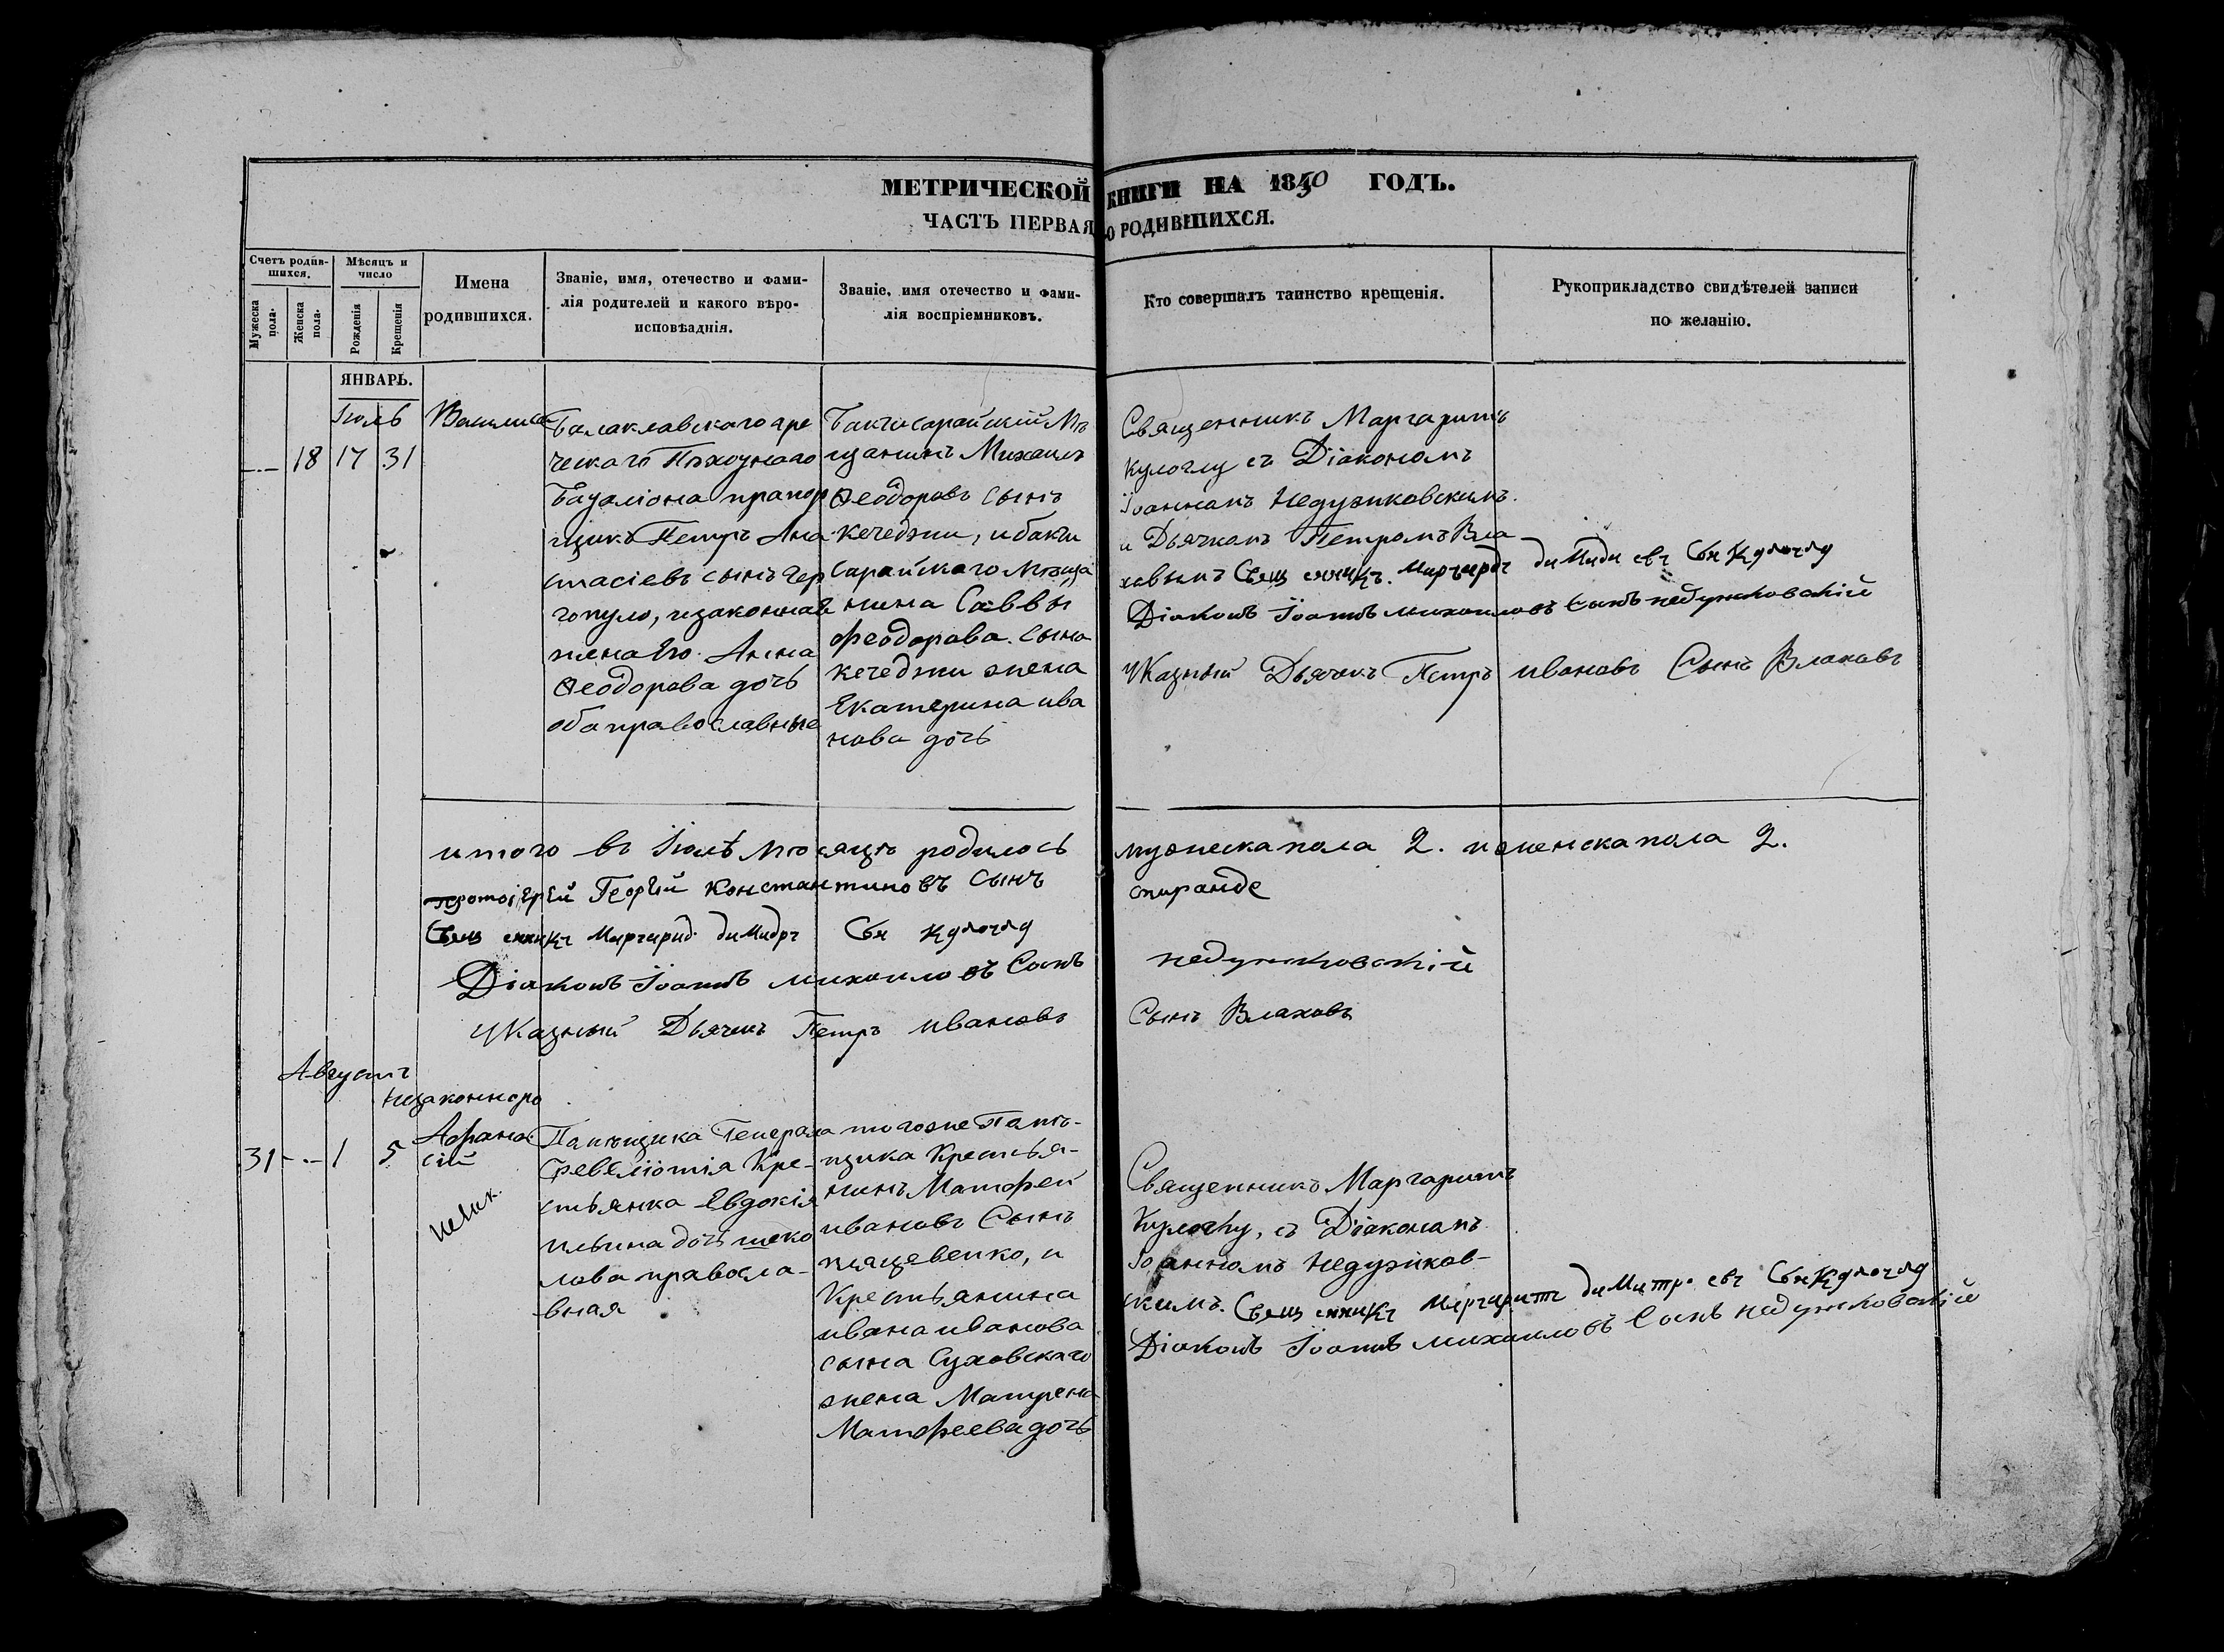 МЕТРИЧЕСКОЙ КНИГИ НА 1850 ГОДЪ.
ЧАСТЬ ПЕРВАЯ О РОДИВШИХСЯ.
Счетъ родив-
шихся.
Мужеска
пола.
Женска
пола.
Мѣсяцъ и
число
Рожденія
Крещенія
Имена
родившихся.
Званіе, имя, отечество и фами-
лія родителей и какого вѣро-
исповѣаднія.
Званіе, имя отечество и фами-
лія воспріемниковъ.
Кто совершалъ таинство крещенія.
Рукоприкладство свидѣтелей записи
по желанію.
ЯНВАРЬ.
Іюль
18 17 31
Балаклавскаго гре
ческаго Пѣхотнаго
Баталіона прапор
щикъ Петръ Ана
стасіевъ сынъ Чер
гопуло, изаконная
жена Его Анна
Ѳеодорова дочь
оба православные
Бакчисарайскій Мѣ
щанинъ Михаилъ
Ѳеодоровъ сынъ
кечеджи, и бакчи
сарайскаго Мѣща
нина Саввы
феодорова сына
кечеджи жена
Екатерина ива
нова дочь
Священникъ Маргаритъ
Кулоглу съ Діакономъ
Іоанномъ Недзиковскимъ
и Дьячкомъ Петромъ Вла
ховымъ
Діаконъ Іоаннъ михаиловъ Сынъ
Указный Дьячекъ Петръ ивановъ Сынъ Влаховъ
итого въ Іюлѣ мѣсяцѣ родилось мужеска пола 2. и женска пола 2.
протоіерей Георгій Константиновъ сынъ спиранде
Діаконъ Іоаннъ михаиловъ Сынъ
Указный Дьячекъ Петръ ивановъ Сынъ Влаховъ
Августъ
незаконноро
31 - - 1 5
Афана
сій
Помѣщика Генерала
Ревеліотія Кре-
стьянка Евдокія
ильина дочь
правосла-
вная
тогоже Помѣ-
щика Крестья-
нинъ Матфей
ивановъ Сынъ
и
Крестьянина
ивана иванова
сына Суховскаго
жена Матрена
Матфеева дочь
Священникъ Маргаритъ
Кулоглу, съ Діакономъ
Іоанномъ
скимъ.
Діаконъ Іоаннъ михаиловъ Сынъ